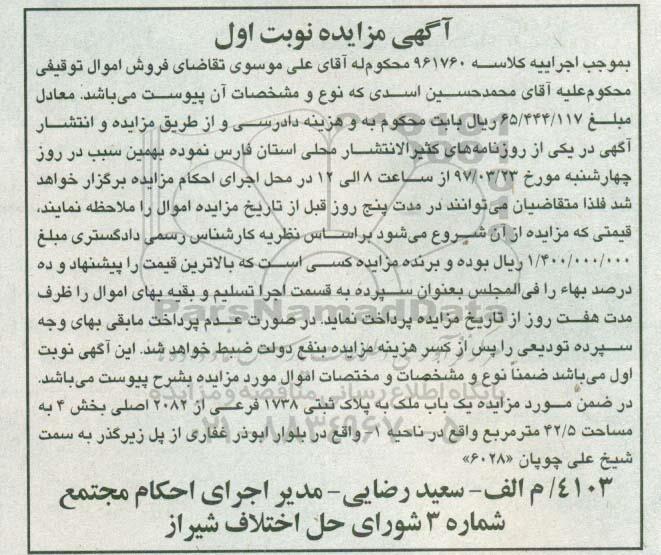 آگهی مزایده نوبت اول
بموجب اجراییه کلاسه ۹۶۱۷۶۰ محکوم‌له آقای علی موسوی تقاضای فروش اموال توقیفی
محکوم‌علیه آقای محمدحسین اسدی که نوع و مشخصات آن پیوست می‌باشد. معادل
مبلغ ۶۵/۴۴۴/۱۱۷ ریال بابت محکوم به و هزینه دادرسی و از طریق مزایده و انتشار
آگهی در یکی از روزنامه‌های کثیرالانتشار محلی استان فارس نموده بهمین سبب در روز
چهارشنبه مورخ ۹۷/۰۳/۲۳ از ساعت ۸ الی ۱۲ در محل اجرای احکام مزایده برگزار خواهد
شد فلذا متقاضیان می‌توانند در مدت پنج روز قبل از تاریخ مزایده اموال را ملاحظه نمایند،
قیمتی که مزایده از آن شروع می‌شود براساس نظریه کارشناس رسمی دادگستری مبلغ
۱/۴۰۰/۰۰۰/۰۰۰ ریال بوده و برنده مزایده کسی است که بالاترین قیمت را پیشنهاد و ده
درصد بهاء را فی‌المجلس بعنوان سپرده به قسمت اجرا تسلیم و بقیه بهای اموال را ظرف
مدت هفت روز از تاریخ مزایده پرداخت نماید. در صورت عدم پرداخت مابقی بهای وجه
سپرده تودیعی را پس از کسر هزینه مزایده بنفع دولت ضبط خواهد شد. این آگهی نوبت
اول می‌باشد ضمناً نوع و مشخصات و مختصات اموال مورد مزایده بشرح پیوست می‌باشد.
در ضمن مورد مزایده یک باب ملک به پلاک ثبتی ۱۷۳۸ فرعی از ۲۰۸۲ اصلی بخش ۴ به
مساحت ۴۲/۵ مترمربع واقع در ناحیه ۱ واقع در بلوار ابوذر غفاری از پل زیرگذر به سمت
شیخ علی چوپان «۶۰۲۸»
۴۱۰۳/ م الف- سعید رضایی- مدیر اجرای احکام مجتمع
شماره ۳ شورای حل اختلاف شیراز
ParsNamadData
پایگاه اطلاع رسانی مناقصه و مزایده